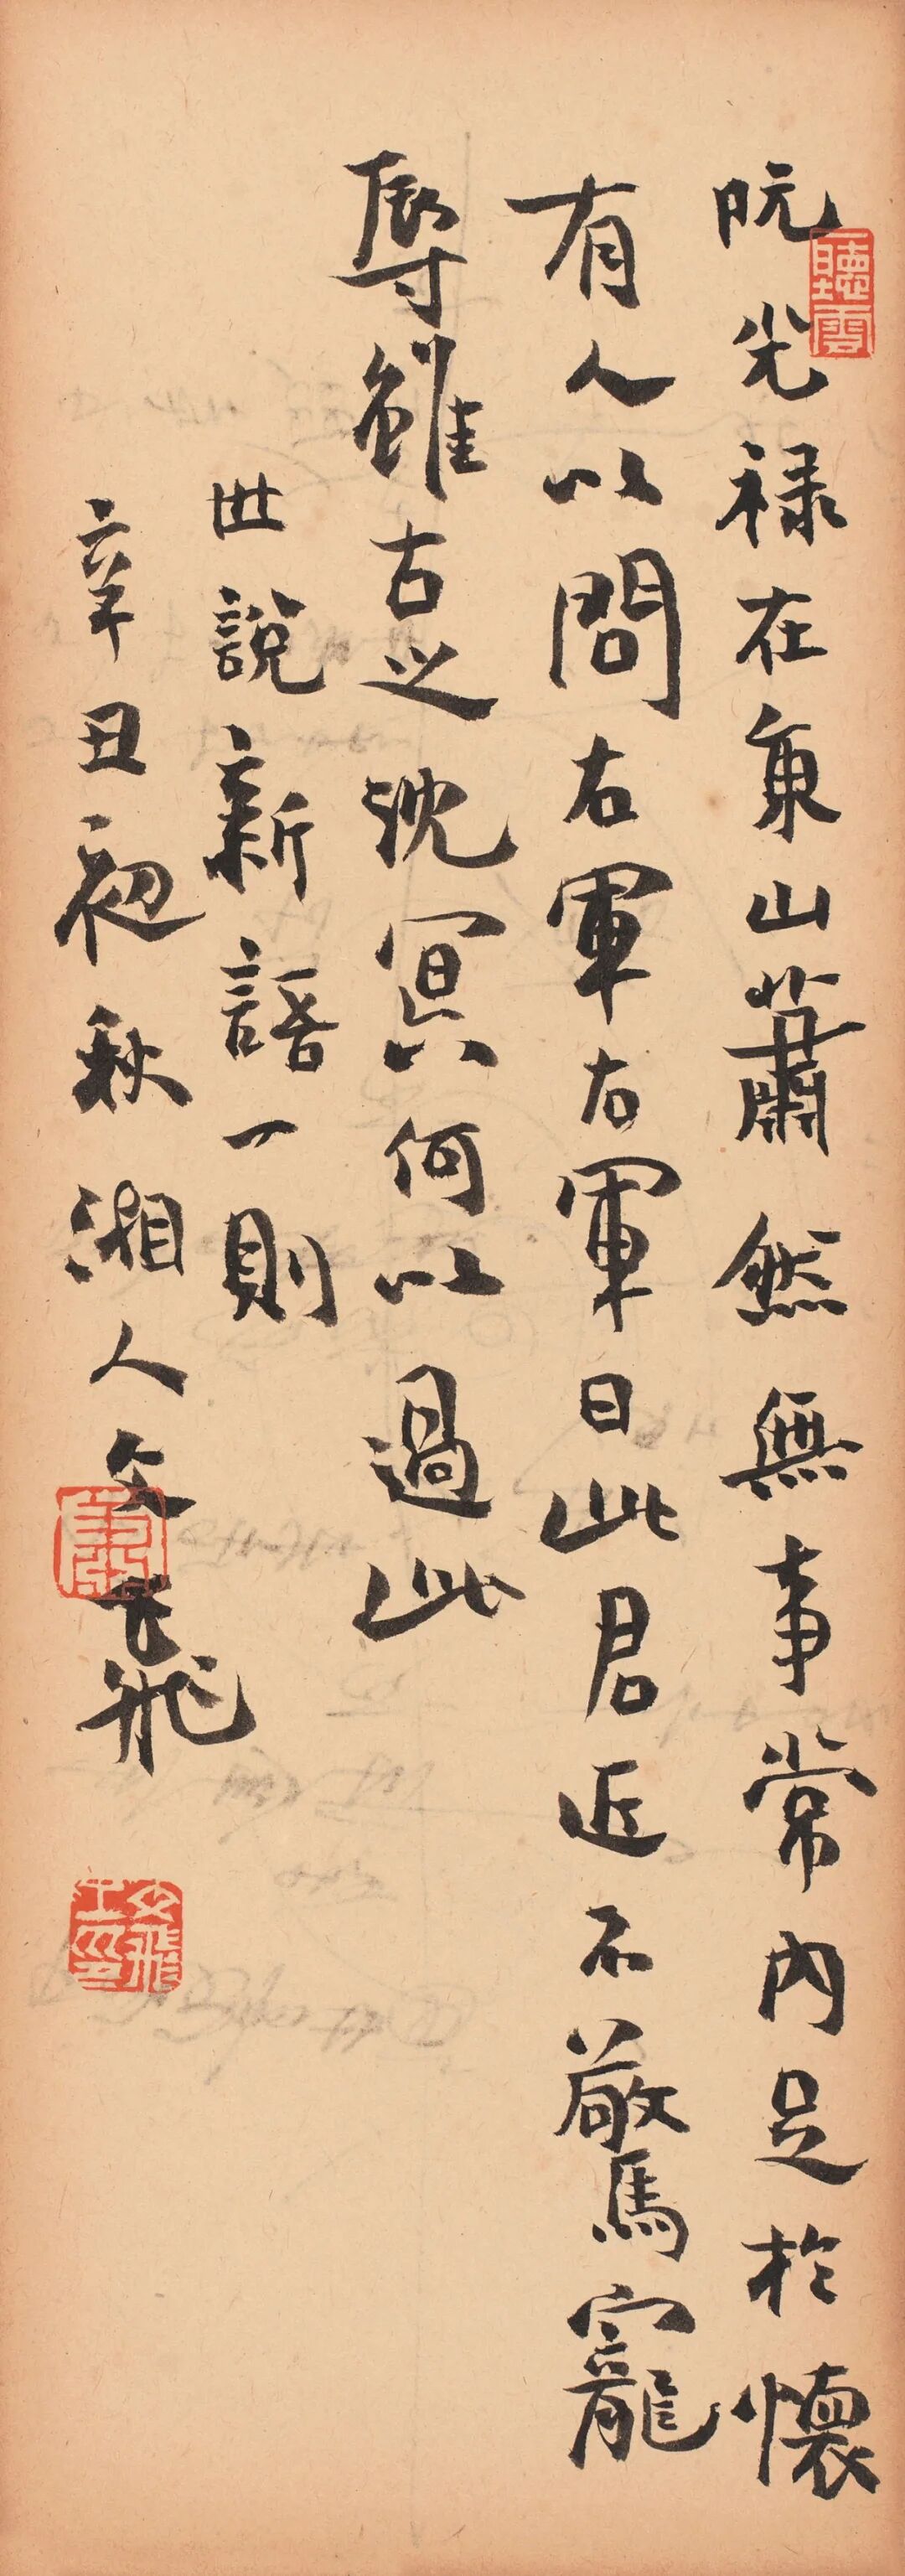 阮光禄在東山蕭然無事常內足於懷
有人以問右軍右軍曰此君近不驚寵
辱雖古之沈冥何以過此
世說新語一則
辛丑初秋湘人文飛
聽雲